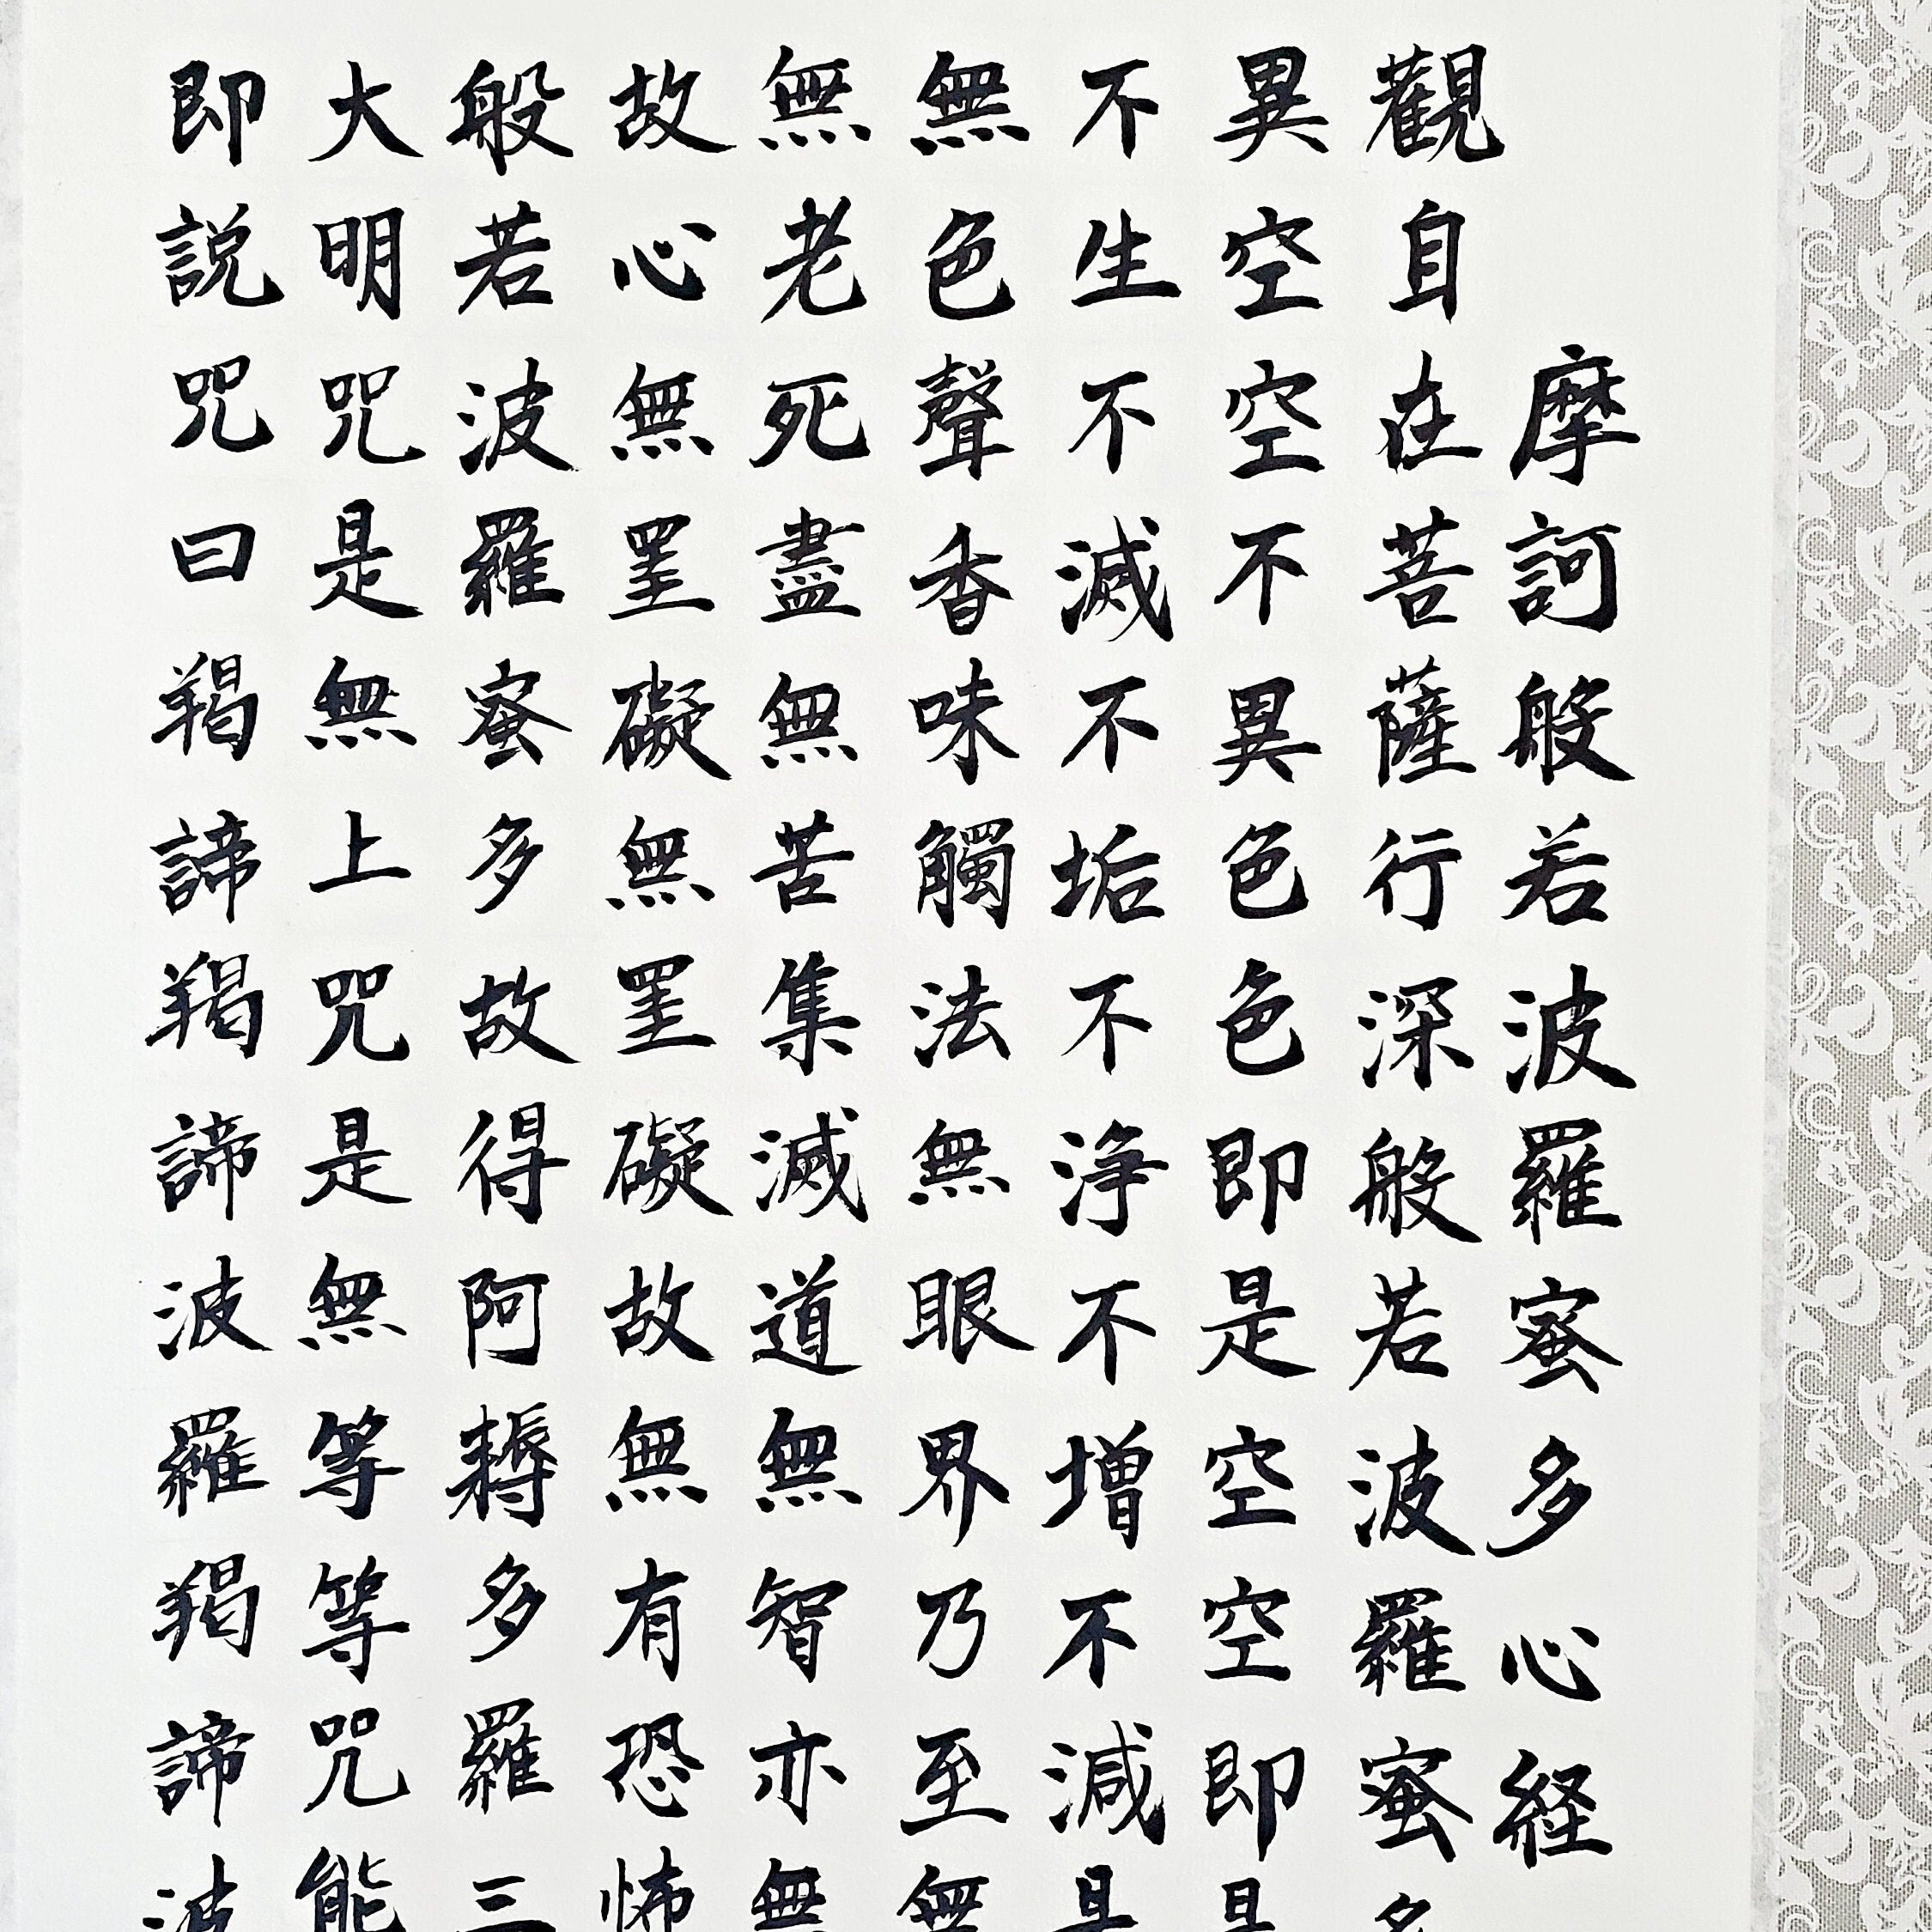 摩訶般若波羅蜜多心経
觀自在菩薩行深般若波羅蜜多
異空空不異色色即是空空即是
不生不滅不垢不浄不增不減是
無色聲香味觸法無眼界乃至無
無老死盡無苦集滅道無智亦無
故心無罣礙無罣礙故無有恐怖
般若波羅蜜多故得阿耨多羅三
大明咒是無上咒是無等等咒能
即説咒曰羯諦羯諦波羅羯諦波